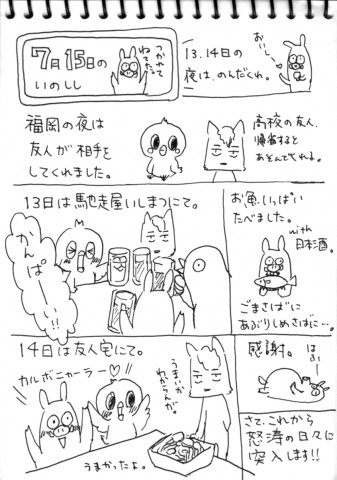 7月15日の
いのしし
つかれて
ねてた。
13.14日の
夜は、のんだくれ。
おいしー
福岡の夜は
友人が相手を
してくれました。
高校の友人。
帰省すると
あそんでくれる。
13日は馳走屋いしまつにて。
かんぱーい!!
お魚いっぱい
たべました。
with
日本酒。
ごまさばに
あぶりしめさばに…。
14日は友人宅にて。
カルボニャーラー♡
うまいが
わからんが。
うまかったよ。
感謝。
はふー
さて、これから
怒涛の日々に
突入します!!